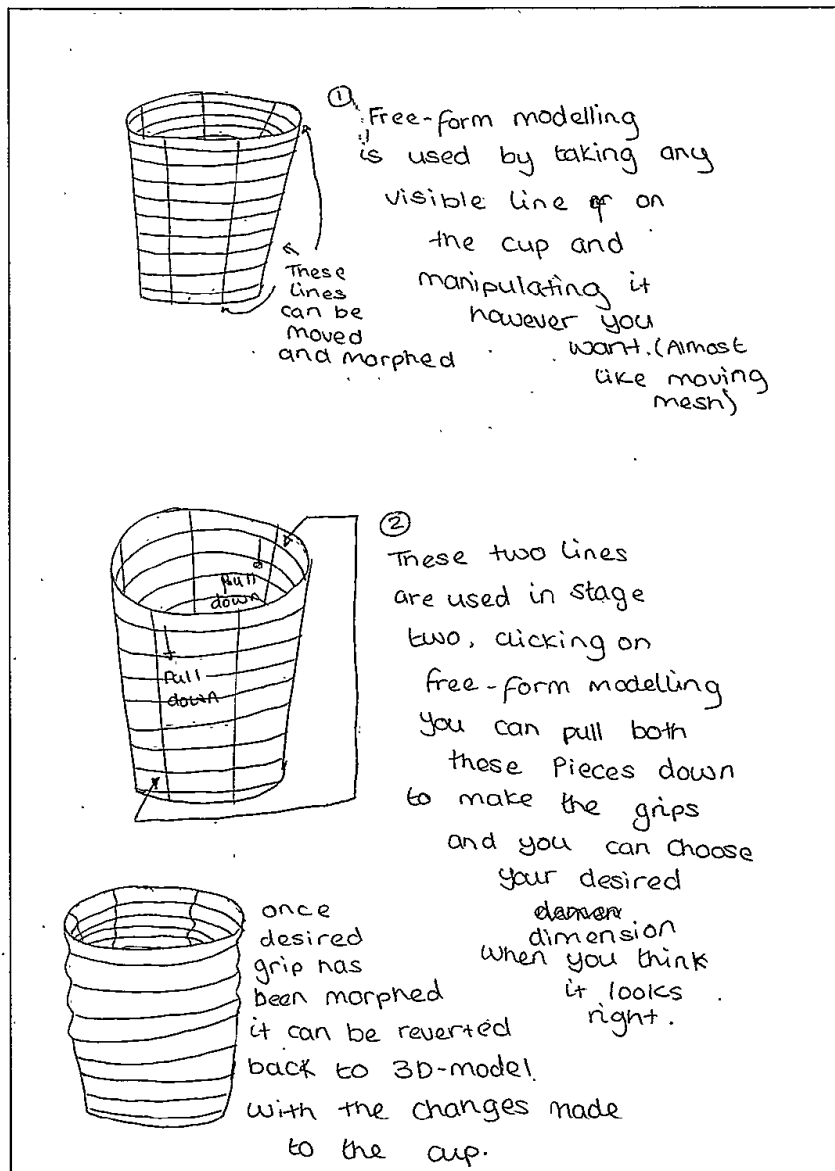 ①
Free-form modelling
is used by taking any
visible line on
the cup and
manipulating it
however you
want. (Almost
like moving
mesh)
These
lines
can be
moved
and morphed
②
These two lines
are used in stage
two, clicking on
free-form modelling
you can pull both
these pieces down
to make the grips
and you can choose
your desired
dimension
when you think
it looks
right.
pull
down
Pull
down
once
desired
grip has
been morphed
it can be reverted
back to 3D-model
with the changes made
to the cup.